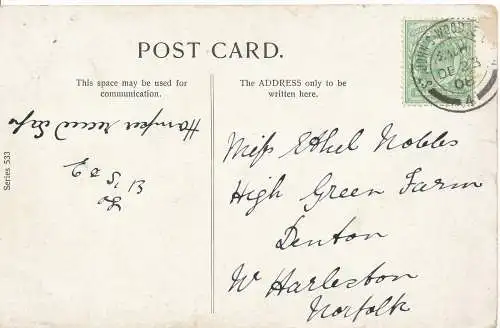 POST CARD.
This space may be used for
communication.
The ADDRESS only to be
written here.
ST JOHN'S WOOD
DE 23
4
Hamper
Series 533
Miss Ethel Nobbs
High Green Farm
Denton
Nr Harleston
Norfolk